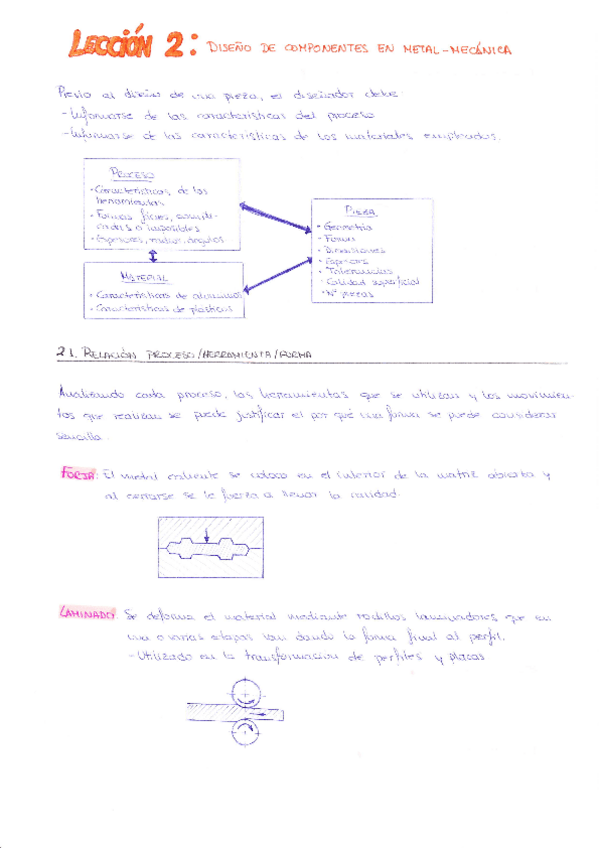 LECCIÓN 2: DISEÑO DE COMPONENTES EN METAL-MECÁNICA
Previo al diseño de una pieza, el diseñador debe:
- Informarse de las características del proceso
- Informarse de las características de los materiales empleados.
PROCESO
- Características de las herramientas
- Formas fáciles, complicadas o imposibles
- Espesores, radios, ángulos
MATERIAL
- Características de aluminios
- Características de plásticos
PIEZA
- Geometría
- Formas
- Dimensiones
- Espesores
- Tolerancias
- Calidad superficial
- Nº piezas
2.1. RELACIÓN PROCESO/HERRAMIENTA/FORMA
Analizando cada proceso, las herramientas que se utilizan y los movimien-
tos que realizan se puede justificar el por qué una forma se puede considerar
sencilla.
FORJA: El metal caliente se coloca en el interior de la matriz abierta y
al cerrarse se le fuerza a llenar la cavidad.
LAMINADO: Se deforma el material mediante rodillos laminadores que en
una o varias etapas van dando la forma final al perfil.
- Utilizado en la transformación de perfiles y placas